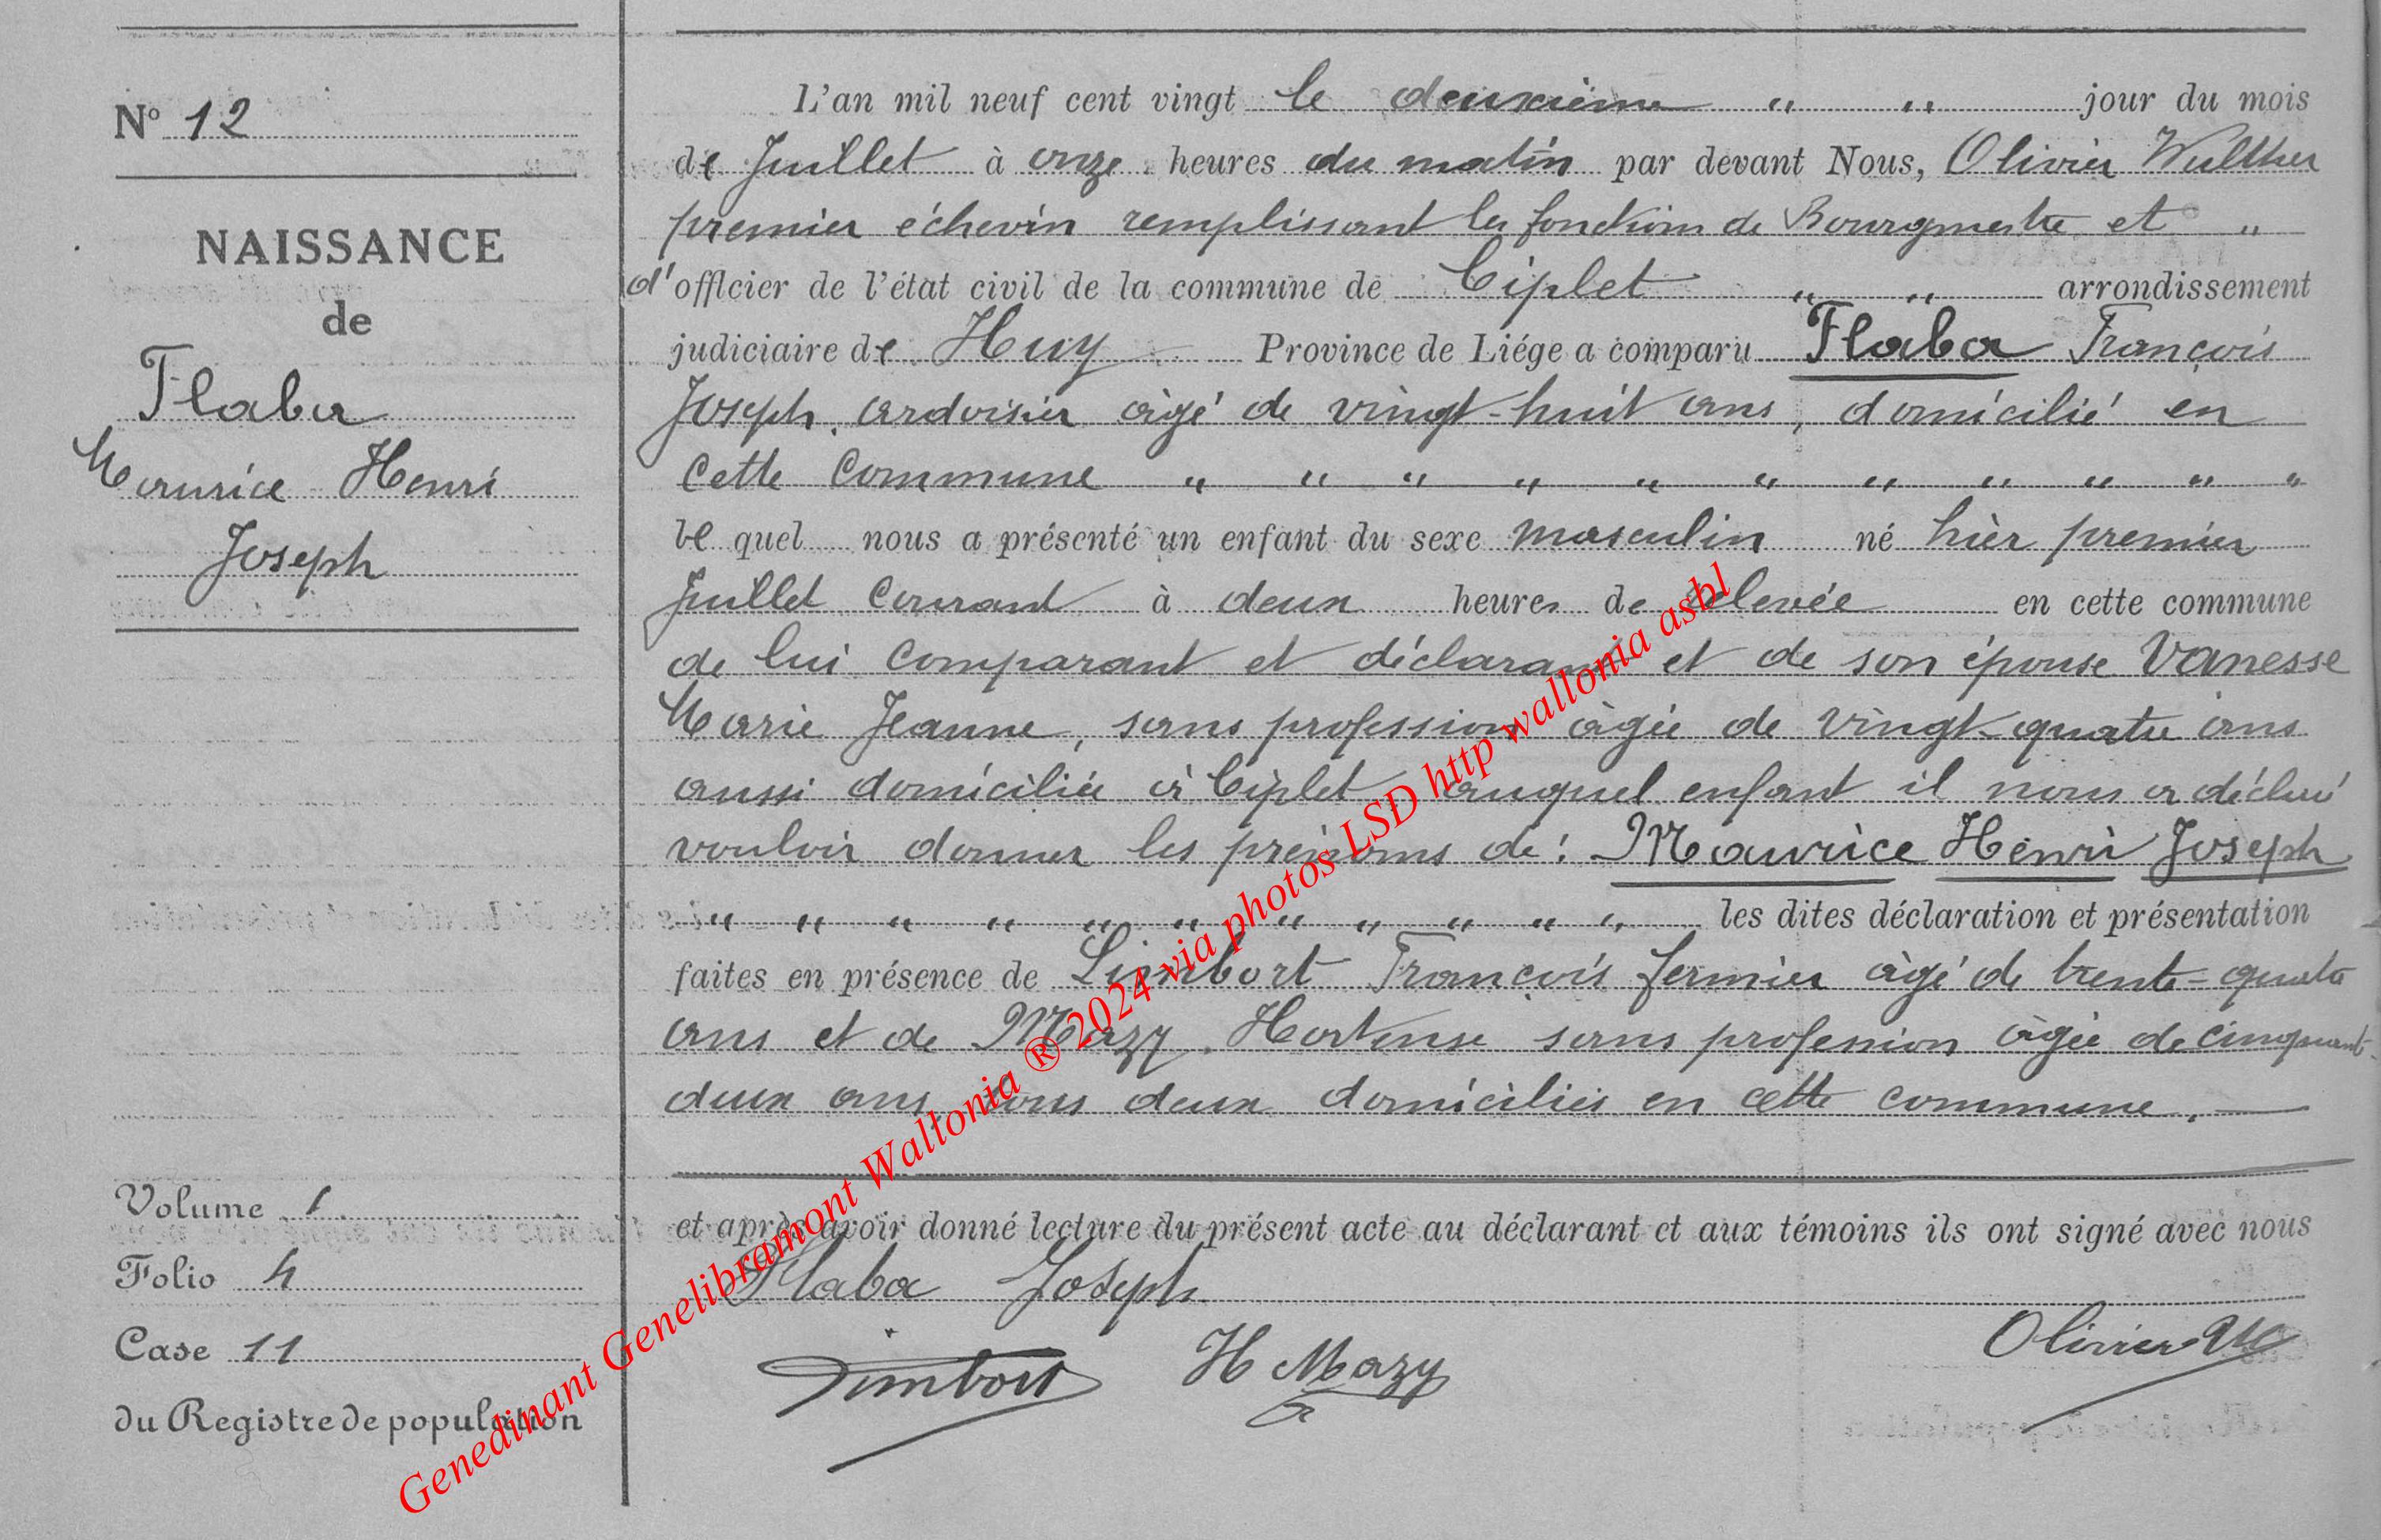 N° 12
NAISSANCE
de
Flaba
Maurice Henri
Joseph
Volume 1
Folio 4
Case 11
du Registre de population
L'an mil neuf cent vingt le deuxième " " jour du mois
de Juillet à onze heures du matin par devant Nous, Olivier Walther
premier échevin remplissant les fonctions de Bourgmestre et "
d'officier de l'état civil de la commune de Ciplet " " arrondissement
judiciaire de Huy Province de Liége a comparu Flaba François
Joseph, ardoisier âgé de vingt-huit ans, domicilié en
cette commune " " " " " " " " " " "
lequel nous a présenté un enfant du sexe masculin né hier premier
Juillet courant à deux heures de relevée en cette commune
de lui comparant et déclarant et de son épouse Vanesse
Marie Jeanne, sans profession âgée de vingt-quatre ans
aussi domiciliée à Ciplet, auquel enfant il nous a déclaré
vouloir donner les prénoms de: Maurice Henri Joseph
" " " " " " " " " " " les dites déclaration et présentation
faites en présence de Limbort François fermier âgé de trente-quatre
ans et de Mazy Hortense sans profession âgée de cinquante-
deux ans, tous deux domiciliés en cette commune.
et après avoir donné lecture du présent acte au déclarant et aux témoins ils ont signé avec nous
Flaba Joseph
Limbort H Mazy Olivier W
Genedinant Genelibramont Wallonia ® 2024 via photos LSD http wallonia asbl